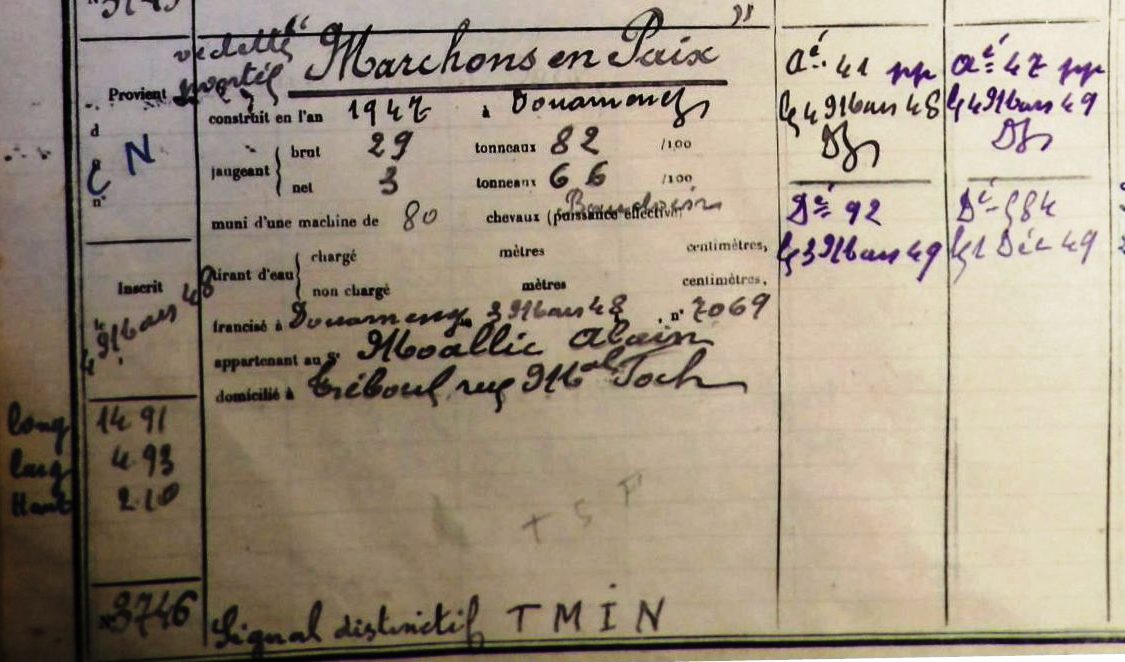 N° 3745
vedette "Marchons en Paix"
pontée
Provient
d
N
n°
construit en l'an 1947 à Douarnenez
jaugeant
brut 29 tonneaux 82 /100
net 3 tonneaux 66 /100
muni d'une machine de 80 chevaux (puissance effective)
Baudouin
tirant d'eau
chargé mètres centimètres,
non chargé mètres centimètres,
francisé à Douarnenez 3 Mars 48, n° 7069
appartenant au Sr Moallic Alain
domicilié à Tréboul, rue Mal Foch
Inscrit
le 4 Mars 48
long 14 91
larg 4.93
Haut 2.10
T S F
N° 3746
Signal distinctif T M I N
Aé 41 pp
le 4 Mars 48
Dz
Dé 92
le 3 Mars 49
Aé 47 pp
le 4 Mars 49
Dz
Dé 584
le 1 Déc 49